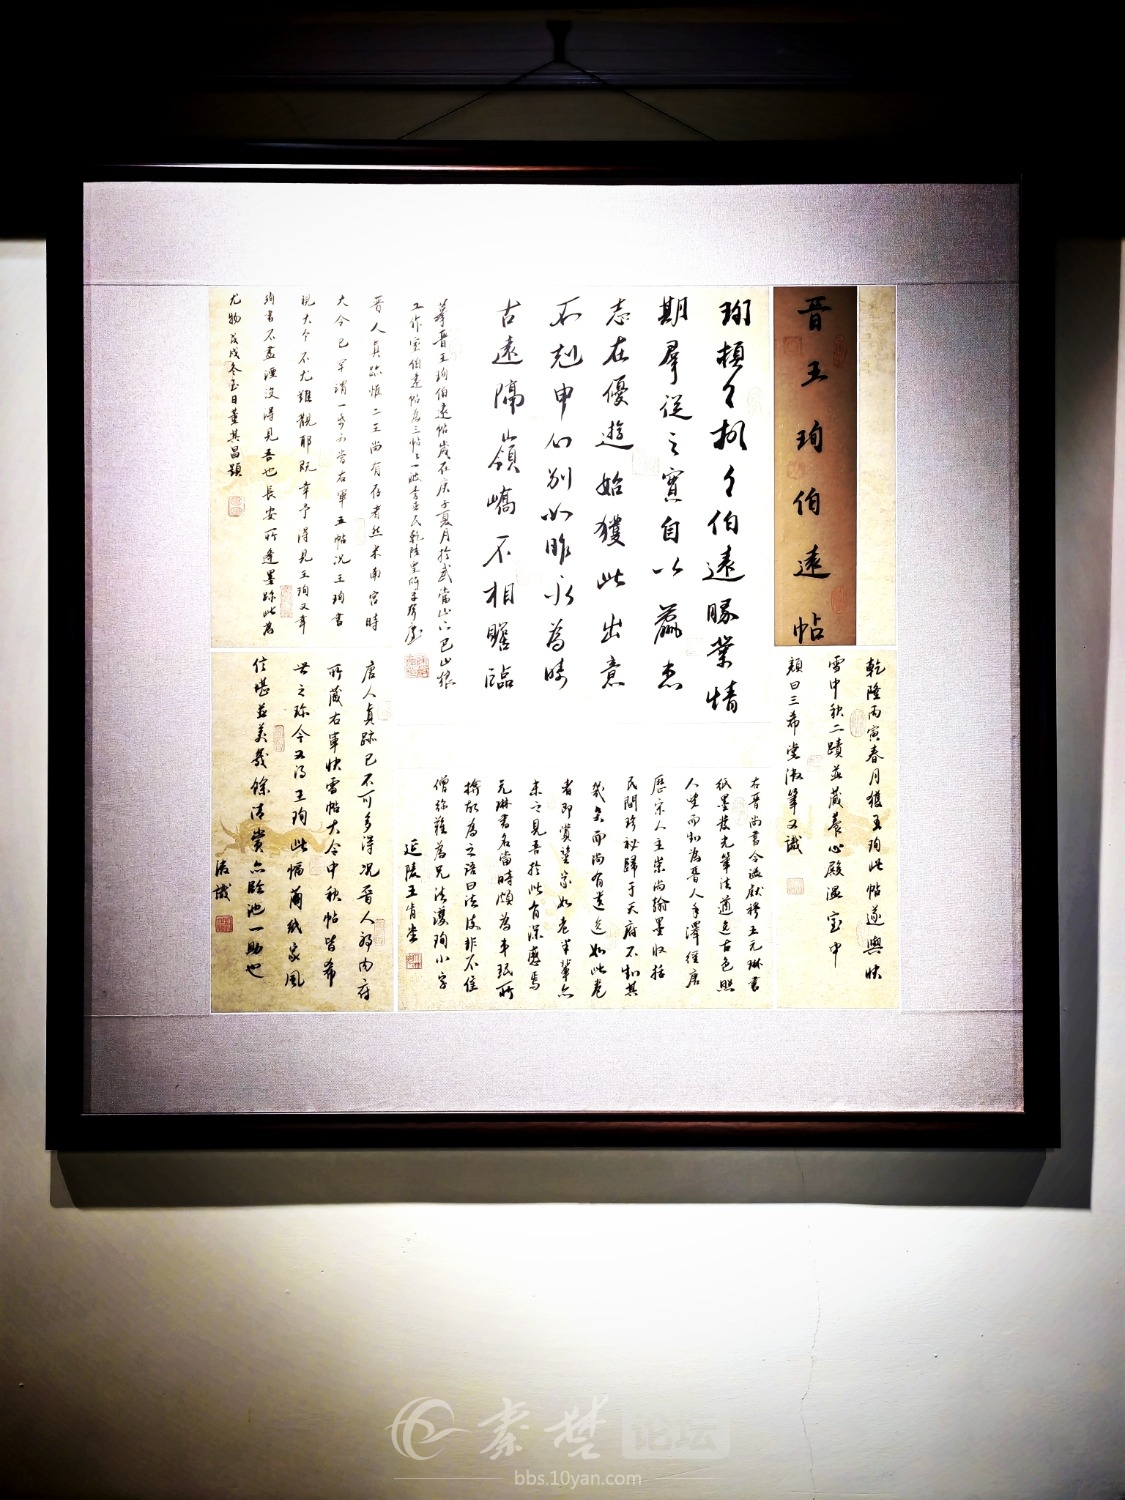 晋王珣伯遠帖
珣頓首頓首伯遠勝業情
期羣從之寶自以羸患
志在優遊始獲此出意
不剋申分別如昨永為疇
古遠隔嶺嶠不相瞻臨
摹晋王珣伯遠帖歲在庚子夏月於武當山下巴山猿
工作室伯遠帖為三帖之一
晋人真跡惟二王尚有存者然米南宮時
大令已罕謂一紙可當右軍五帖況王珣書
視大令不尤難覯耶既幸予得見王珣又幸
珣書不盡湮没得見吾也長安所逢墨跡此為
尤物戊戌冬至日董其昌題
乾隆丙寅春月獲王珣此帖遂與快
雪中秋二蹟並藏養心殿溫室中
顏曰三希堂御筆又識
右晋尚書令謚獻穆王元琳書
紙墨發光筆法遒逸古色照
人望而知為晋人手澤經唐
歷宋人主崇尚翰墨收括
民間珍秘歸于天府不知其
幾矣而尚有遺逸如此卷
者即賞鑒家如老米輩亦
未之見吾於此有深感焉
元琳書名當時頗為弟珉所
掩故為之語曰法護非不佳
僧彌難為兄法護珣小字
延陵王肯堂
唐人真跡已不可多得況晋人耶内府
所藏右軍快雪帖大令中秋帖皆希
世之珍今又得王珣此幅繭紙家風
信堪並美幾餘清賞亦臨池一助也
御識
秦楚论坛
bbs.10yan.com